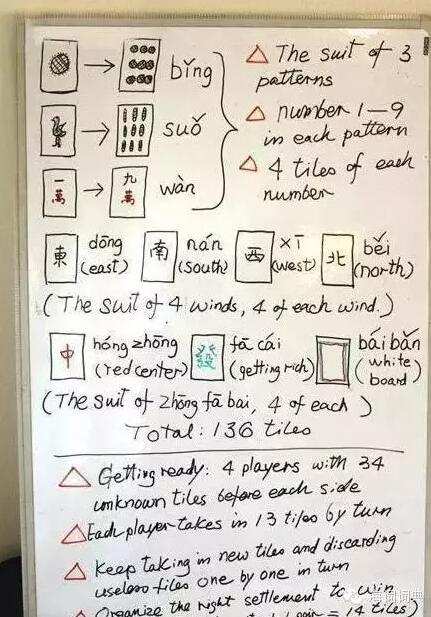 bǐng
△ The suit of 3
patterns
suǒ
△ number 1–9
in each pattern
一萬 → 九萬 wàn
△ 4 tiles of each
number
東 dōng (east) 南 nán (south) 西 xī (west) 北 běi (north)
(The suit of 4 winds, 4 of each wind.)
中 hóng zhōng (red center) 發 fā cái (getting rich) bái bǎn (white board)
(The suit of zhōng fā bai, 4 of each)
Total: 136 tiles
△ Getting ready: 4 players with 34
unknown tiles before each side
△ Each player takes in 13 tiles by turn
△ Keep taking in new tiles and discarding
useless tiles one by one in turn
△ Organize the right settlement to win
= 14 tiles)